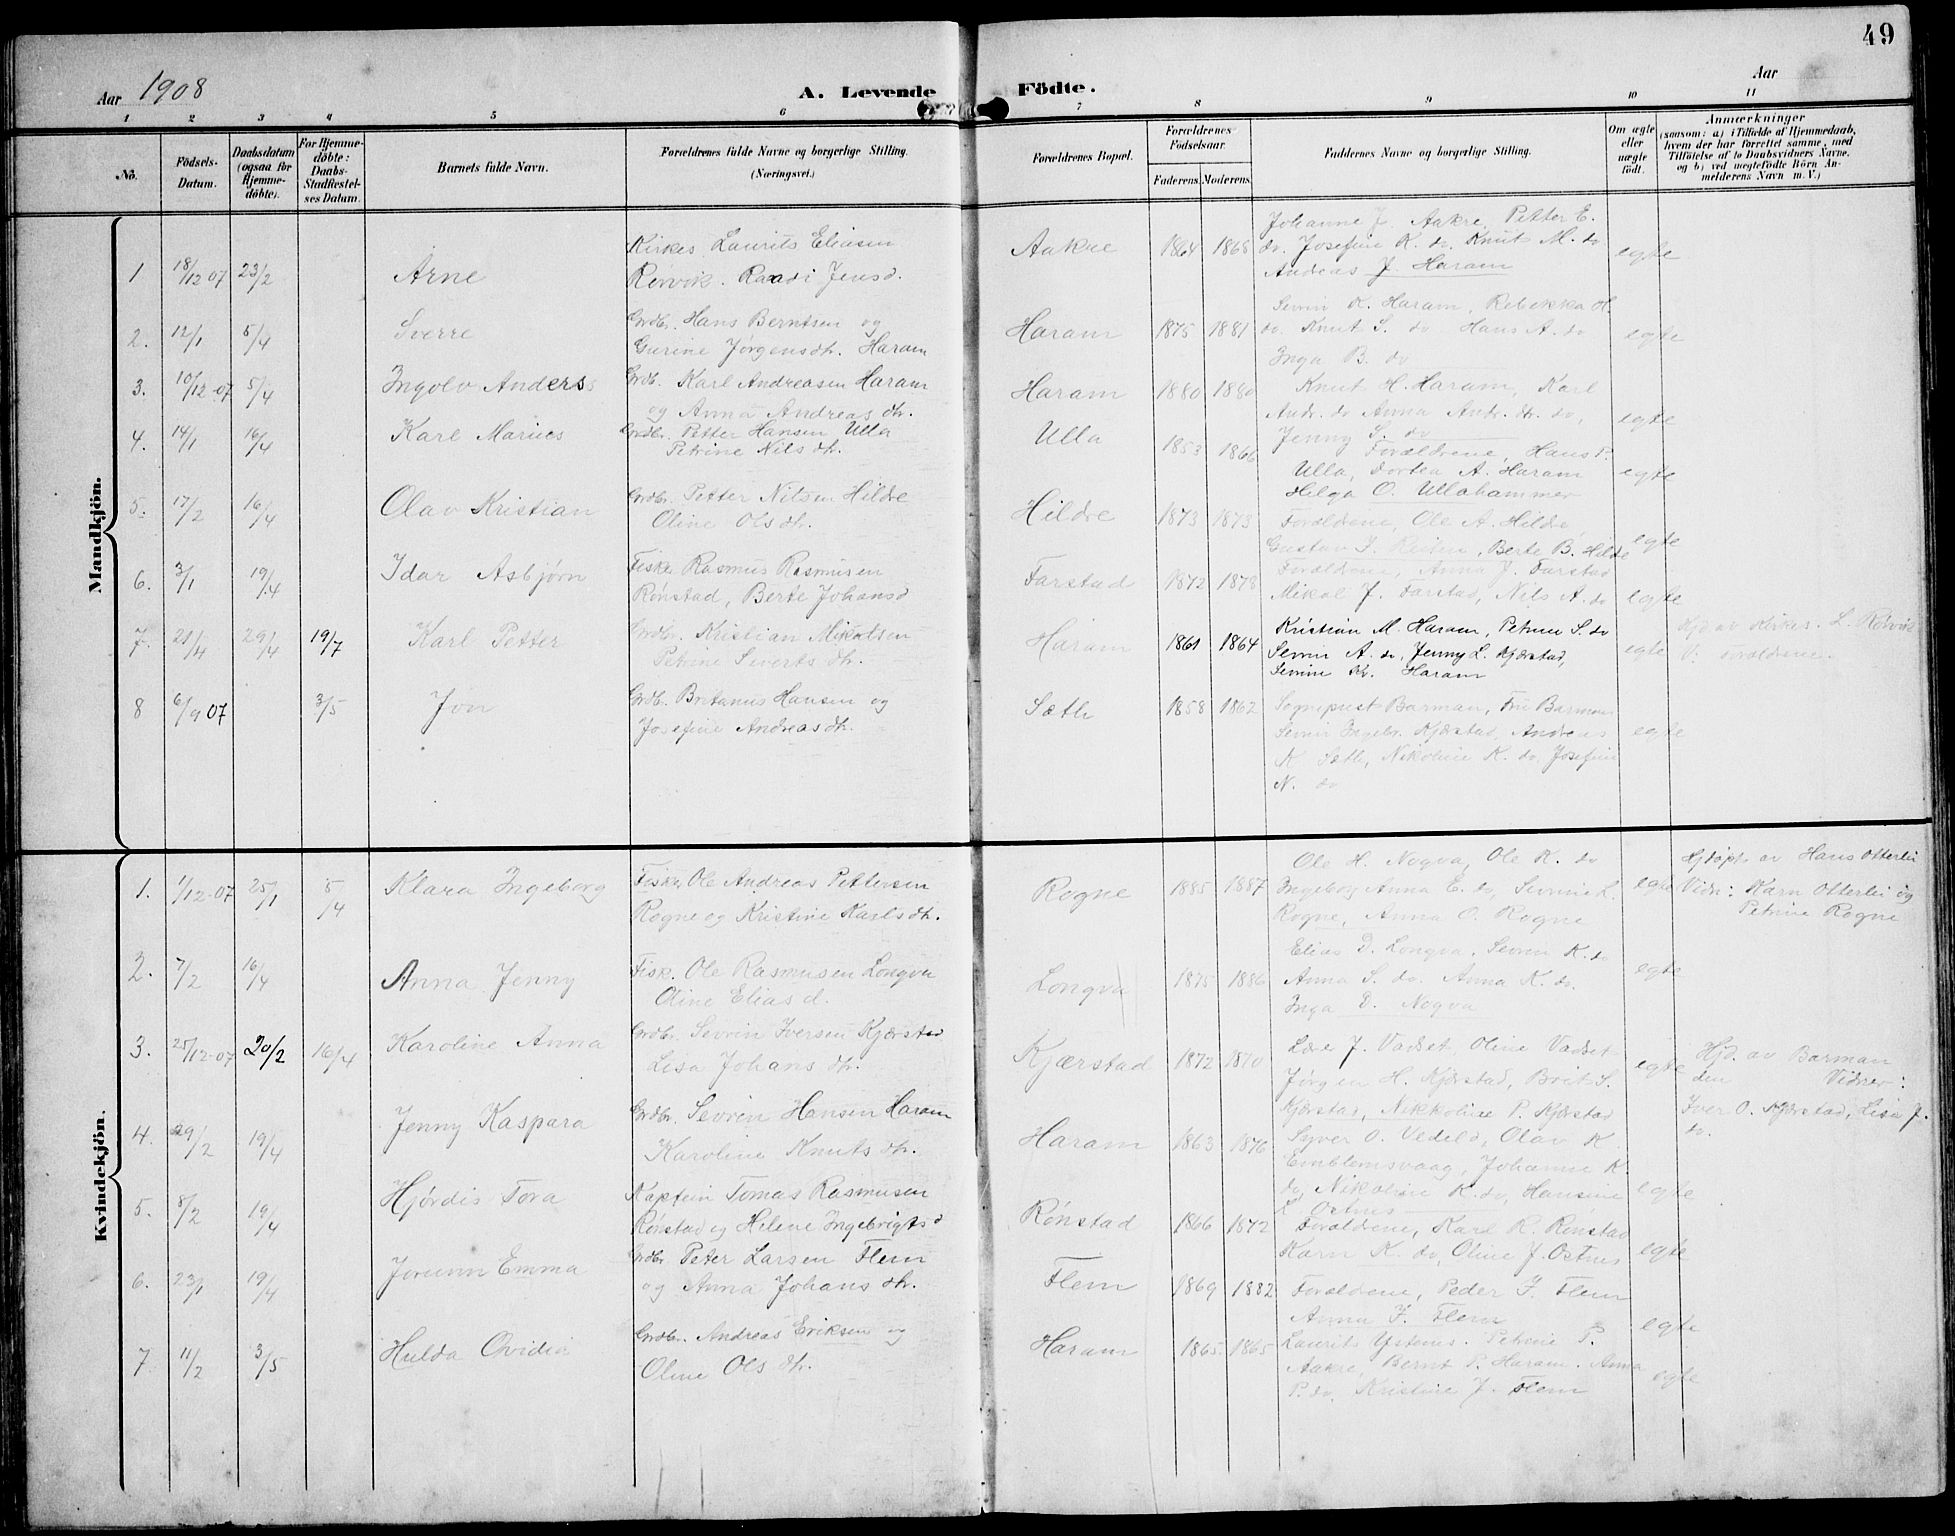 49
Aar 1908
A. Levende
Födte.
Aar
1 2 3 4 5 6 7 8 9 10 11
No.
Födsels-Datum.
Daabsdatum (ogsaa for Hjemmedöbte).
For Hjemmedöbte: Daabs-Stadfæstelses Datum.
Barnets fulde Navn.
Forældrenes fulde Navne og borgerlige Stilling.
(Næringsvei.)
Forældrenes Bopæl.
Forældrenes Födselsaar.
Faderens. Moderens.
Faddernes Navne og borgerlige Stilling.
Om ægte eller uægte födt.
Anmærkninger
(saasom: a) i Tilfælde af Hjemmedaab, hvem der har forrettet samme, med Tilföielse af to Daabsvidners Navne, og b) ved uegtefödte Börn Anmelderens Navn m. V.)
Mandkjön.
1 18/12 07 23/2 Arne
Kirkes. Laurits Eliasen
Rørvik. Raadi Jensd.
Aakre 1864 1868
Johanne J. Aakre, Petter E.
do, Josefine K. do, Knut M. do
Andreas J. Haram
egte
2. 12/1 5/4 Sverre
Grdbr. Hans Berntsen og
Gurine Jørgensdtr. Haram
Haram 1875 1881
Sevrin K. Haram, Rebekka H.
do. Knut S. do Hans A. do
Inga B. do
egte
3. 10/12-07 5/4 Ingolv Anders
Grdb. Karl Andreasen Haram
og Anna Andreasdtr.
Haram 1880 1880
Knut H. Haram, Karl
Andr. do Anna Andr. dtr. do,
Jenny S. do
egte
4. 14/1 16/4 Karl Marius
Grdbr. Petter Hansen Ulla
Petrine Nilsdtr.
Ulla 1853 1866
Forældrene, Hans P.
Ulla, Dortea A. Haram
Helga O. Ullahammer
egte
5. 17/2 16/4 Olav Kristian
Grdbr. Petter Nilsen Hildre
Oline Olsdtr.
Hildre 1873 1873
Forældrene, Ole A. Hildre
Gustav J. Reiten, Berte B. Hildre
egte
6. 3/1 19/4 Idar Asbjørn
Fisker Rasmus Rasmusen
Rønstad, Berte Johansd
Farstad 1872 1878
Forældrene, Anna J. Farstad
Mikal J. Farstad, Nils A. do
egte
7. 21/4 29/4 19/7 Karl Petter
Grdbr. Kristian Mikalsen
Petrine Sivertsdtr.
Haram 1861 1864
Kristian M. Haram, Petrine S. do
Sevrin A. do, Jenny L. Kjærstad,
Sevrine Kr. Haram
egte
Hjd av Kirkes. L. Rørvik
V: Forældrene.
8 6/9 07 3/5 Jon
Grdb. Bretanus Hansen og
Josefine Andreasdtr.
Sætle 1858 1862
Sogneprest Barman, Fru Barman
Sevrin Ingebr. Kjærstad, Andreas
K. Sætle, Nikoline K. do, Josefine
N. do
egte
Kvindekjön.
1. 1/12-07 25/1 5/4 Klara Ingeborg
Fisker Ole Andreas Pettersen
Rogne og Kristine Karlsdtr.
Rogne 1885 1887
Ole H. Nogva, Ole K. do
Ingeborg Anna E. do, Sevrine L.
Rogne, Anna O. Rogne
egte
Hjdøpt av Hans Otterlei
Vidn: Karn Otterlei og
Petrine Rogne
2. 7/2 16/4 Anna Jenny
Fisk. Ole Rasmusen Longva
Oline Eliasd.
Longva 1875 1886
Elias D. Longva, Sevrin K. do
Anna S. do. Anna K. do.
Inga D. Nogva
egte
3. 25/12-07 20/2 16/4 Karoline Anna
Grdbr. Sevrin Iversen Kjærstad
Lisa Johansdtr.
Kjærstad 1872 1870
J. Vadset Oline Vadset
Jørgen H. Kjærstad, Brit S.
Kjærstad, Nikkoline P. Kjærstad
egte
Hjd. av Barman
den Vidner:
Iver O. Kjærstad, Lisa J.
do.
4. 29/2 19/4 Jenny Kaspara
Grdbr. Sevrin Hansen Haram
Karoline Knutsdtr.
Haram 1863 1876
Syver O. Vedeld, Olav K.
Emblemsvaag, Johanne K.
do, Nikoline K. do, Hansine
L. Ostnes
egte
5. 8/2 19/4 Hjørdis Tora
Kaptein Tomas Rasmusen
Rønstad og Helene Ingebrigtsd
Rønstad 1866 1872
Forældrene, Karl R. Rønstad
Karn K. do, Oline J. Ostnes
egte
6. 23/1 19/4 Jorunn Emma
Grdbr. Peter Larsen Flem
og Anna Johansdtr.
Flem 1869 1882
Forældrene, Peder J. Flem
Anna J. Flem
egte
7. 11/2 3/5 Hulda Ovidia
Grdbr. Andreas Eriksen og
Oline Olsdtr.
Haram 1865 1865
Laurits Ystenes. Petrine P.
Aakre, Bernt P. Haram. Anna
P. do, Kristine J. Flem
egte